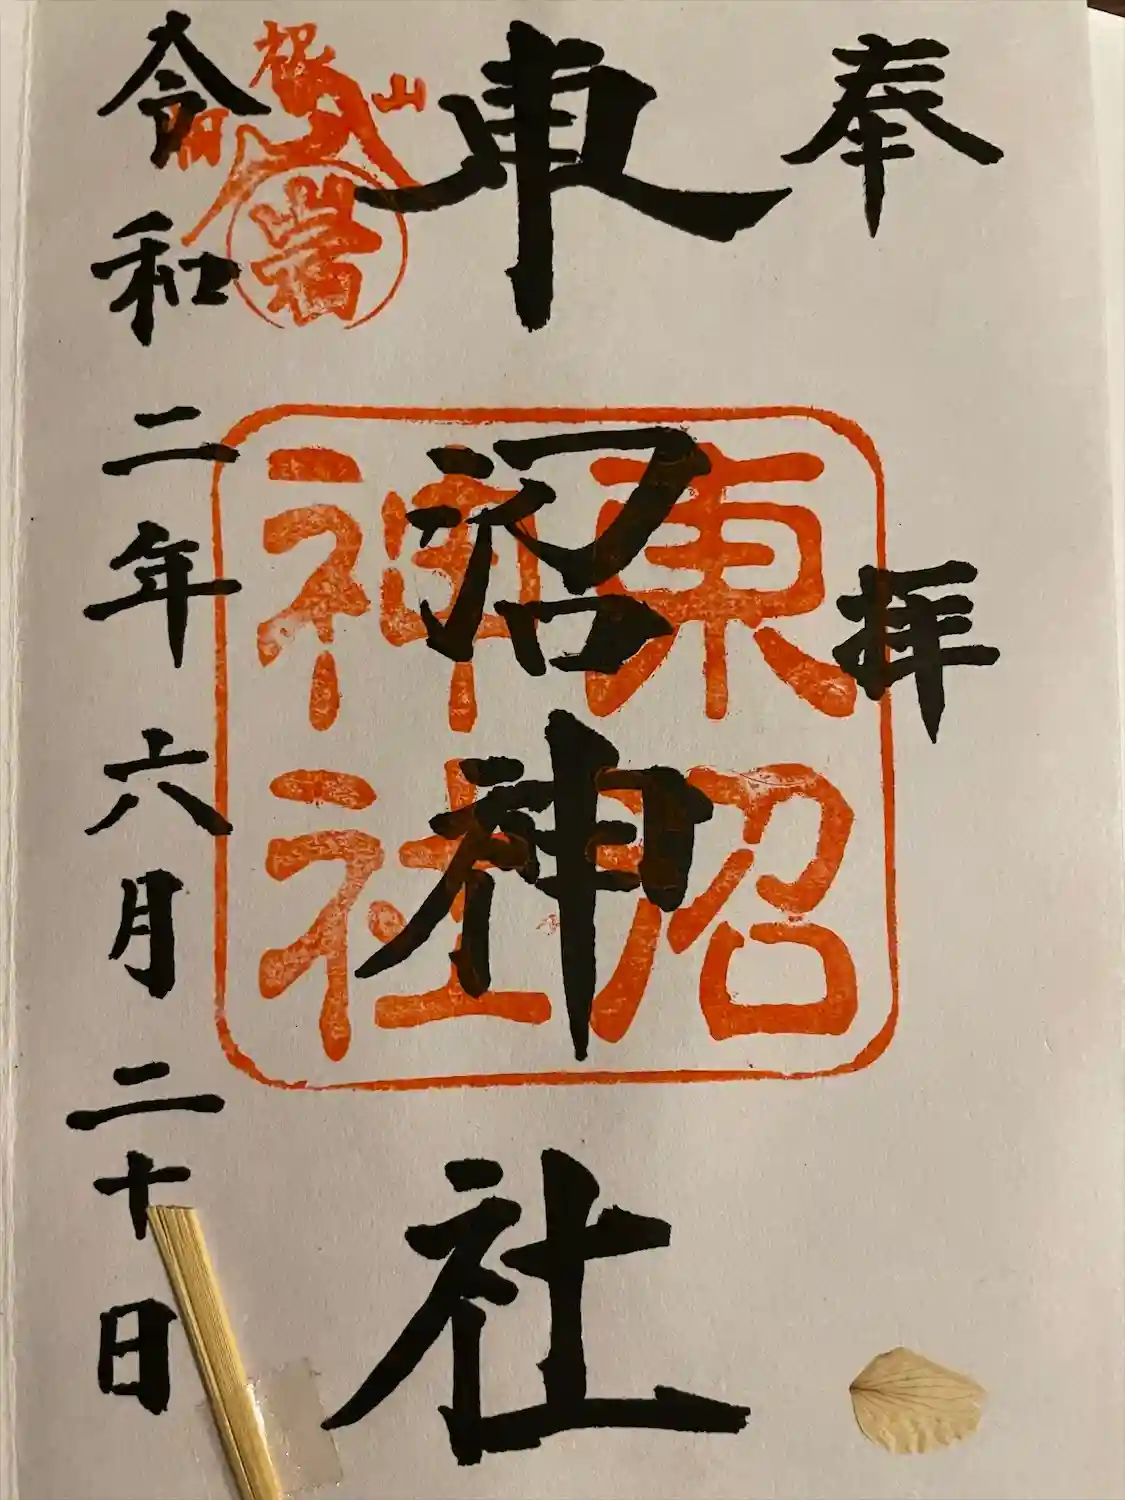 奉拝
東沼神社
東沼神社
山
令和二年六月二十日